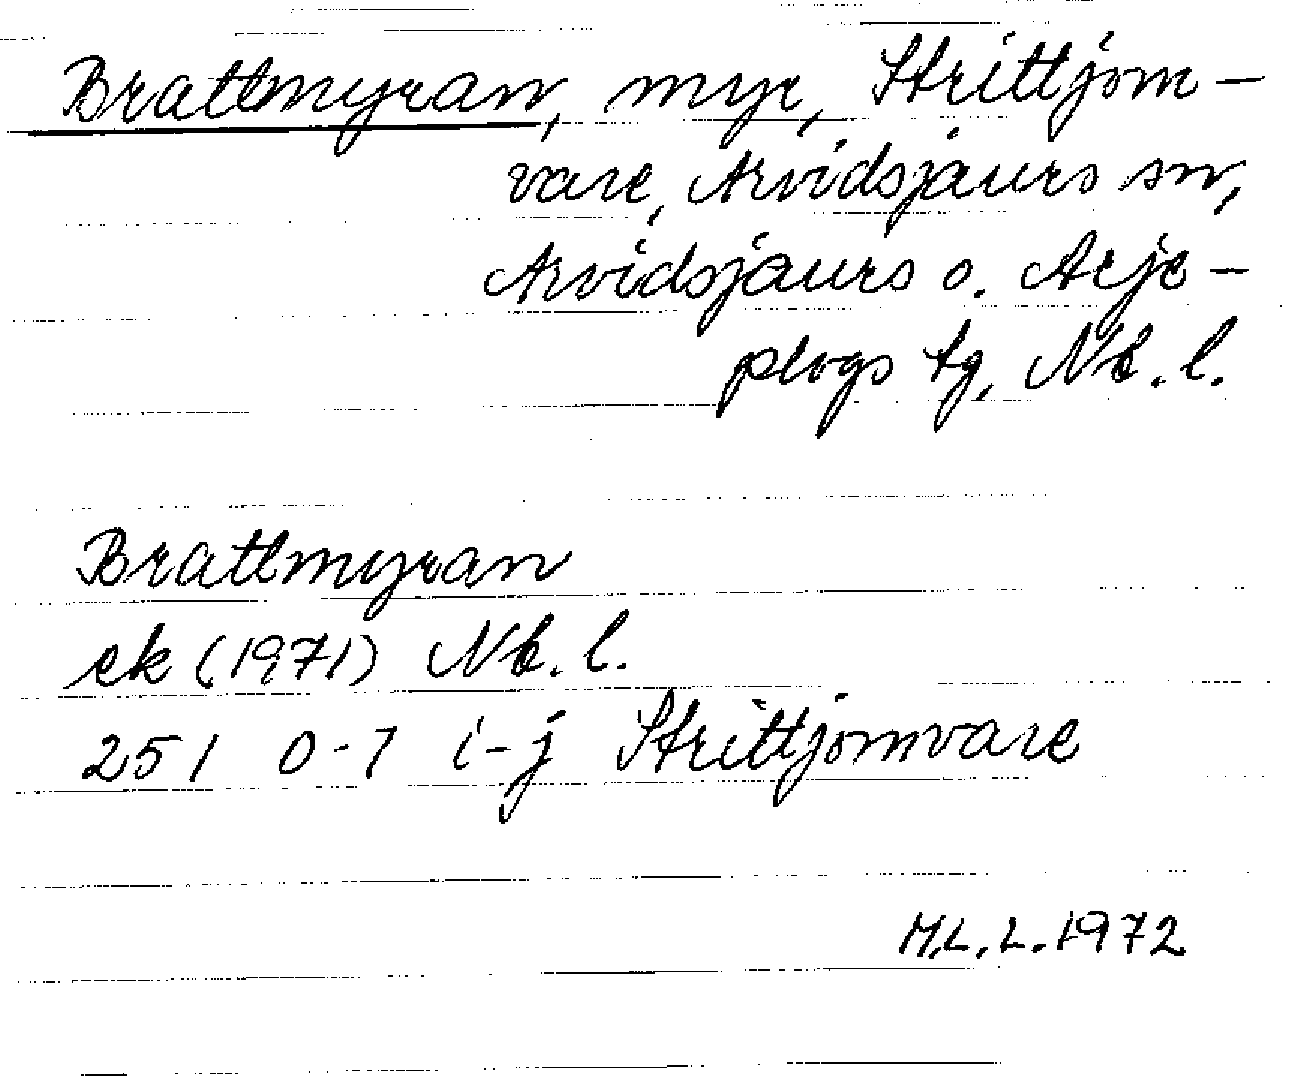 Brattmyran, myr, Strittjom-
vare, Arvidsjaurs sn,
Arvidsjaurs o. Arje-
plogs tg, Nb. l.
Brattmyran
ek (1971) Nb. l.
251 0-1 i-j Strittjomvare
M.L.L. 1972